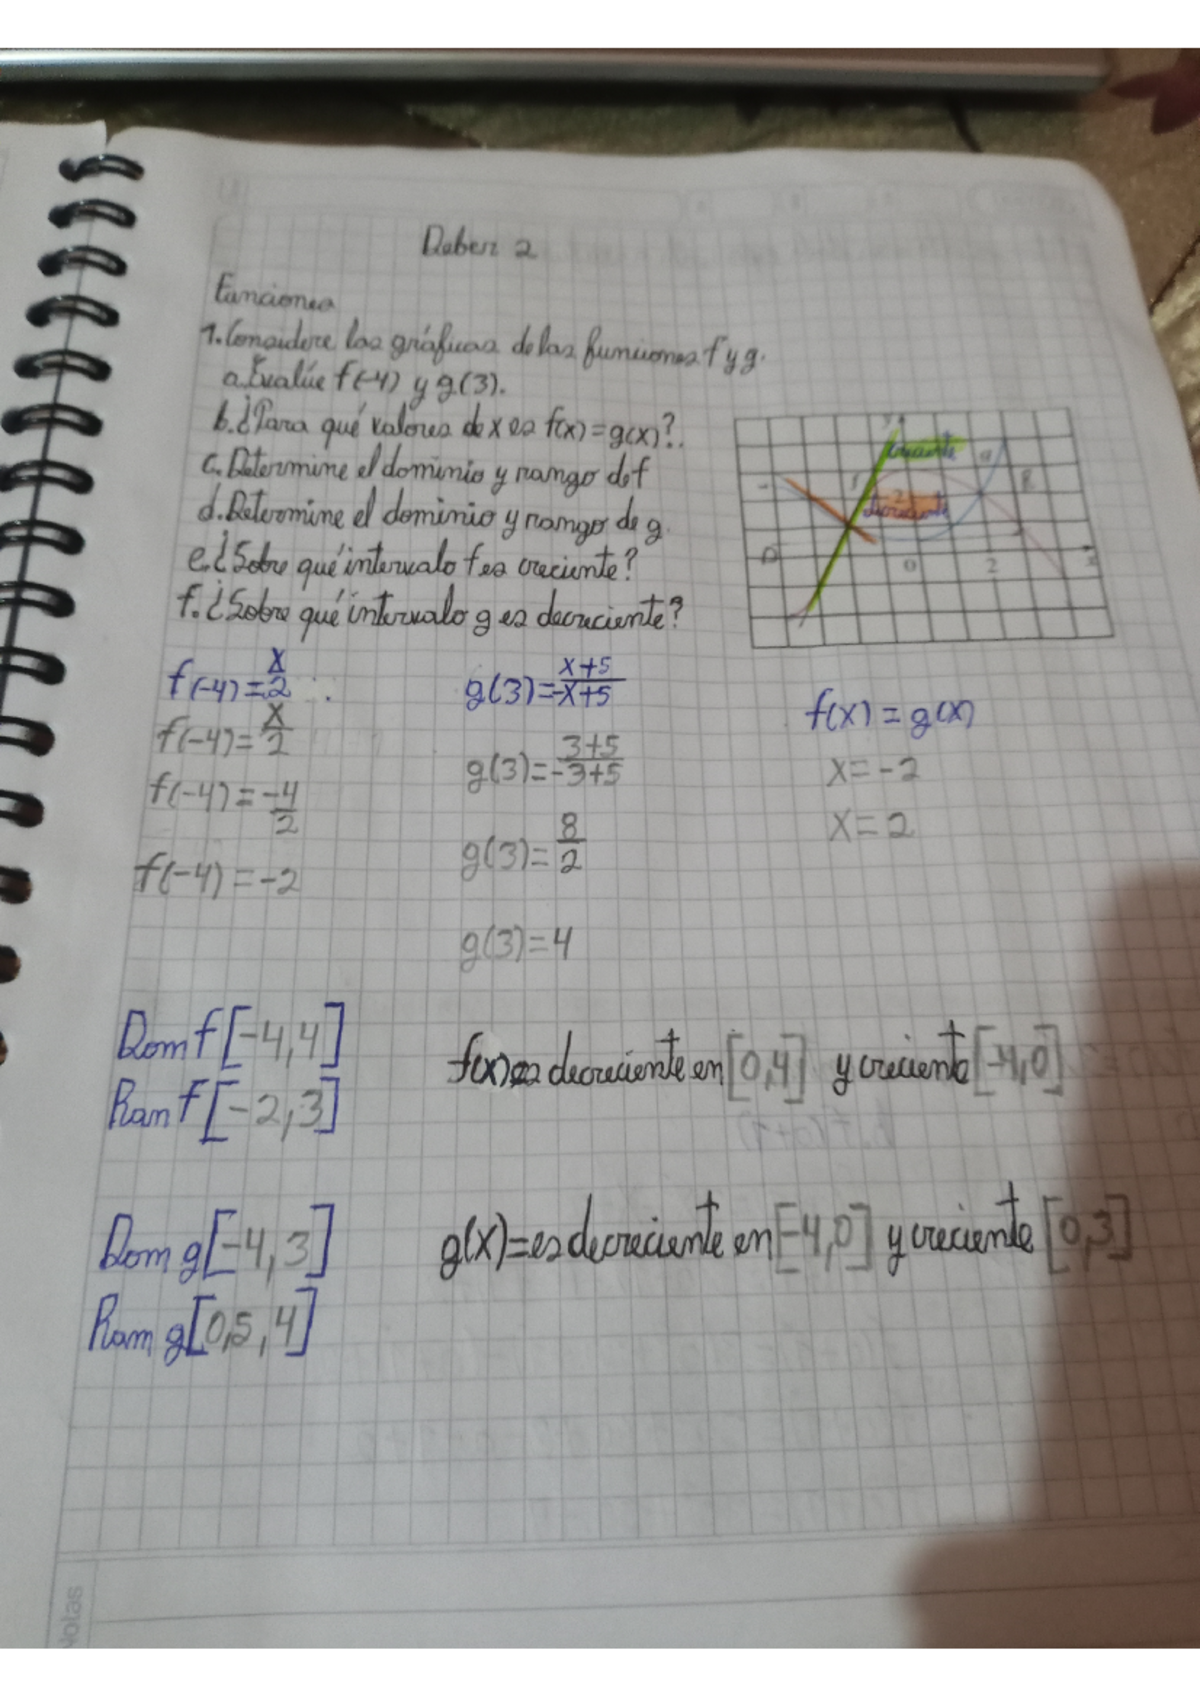 Deber 2
Funciones
1. Considere las gráficas de las funciones f y g.
a. Evalúe f(-4) y g(3).
b. ¿Para qué valores de x es f(x) = g(x)?.
c. Determine el dominio y rango de f
d. Determine el dominio y rango de g.
e. ¿Sobre qué intervalo f es creciente?
f. ¿Sobre qué intervalo g es decreciente?
y
creciente
g
f
2
decreciente
0
2
x
f(-4) = x/2
f(-4) = x/2
f(-4) = -4/2
f(-4) = -2
g(3) = x+5/-x+5
g(3) = 3+5/-3+5
g(3) = 8/2
g(3) = 4
f(x) = g(x)
x = -2
x = 2
Dom f [-4,4]
Ran f [-2,3]
f(x) es decreciente en [0,4] y creciente [-4,0]
Dom g [-4,3]
Ran g [0,5,4]
g(x) = es decreciente en [-4,0] y creciente [0,3]
Notas